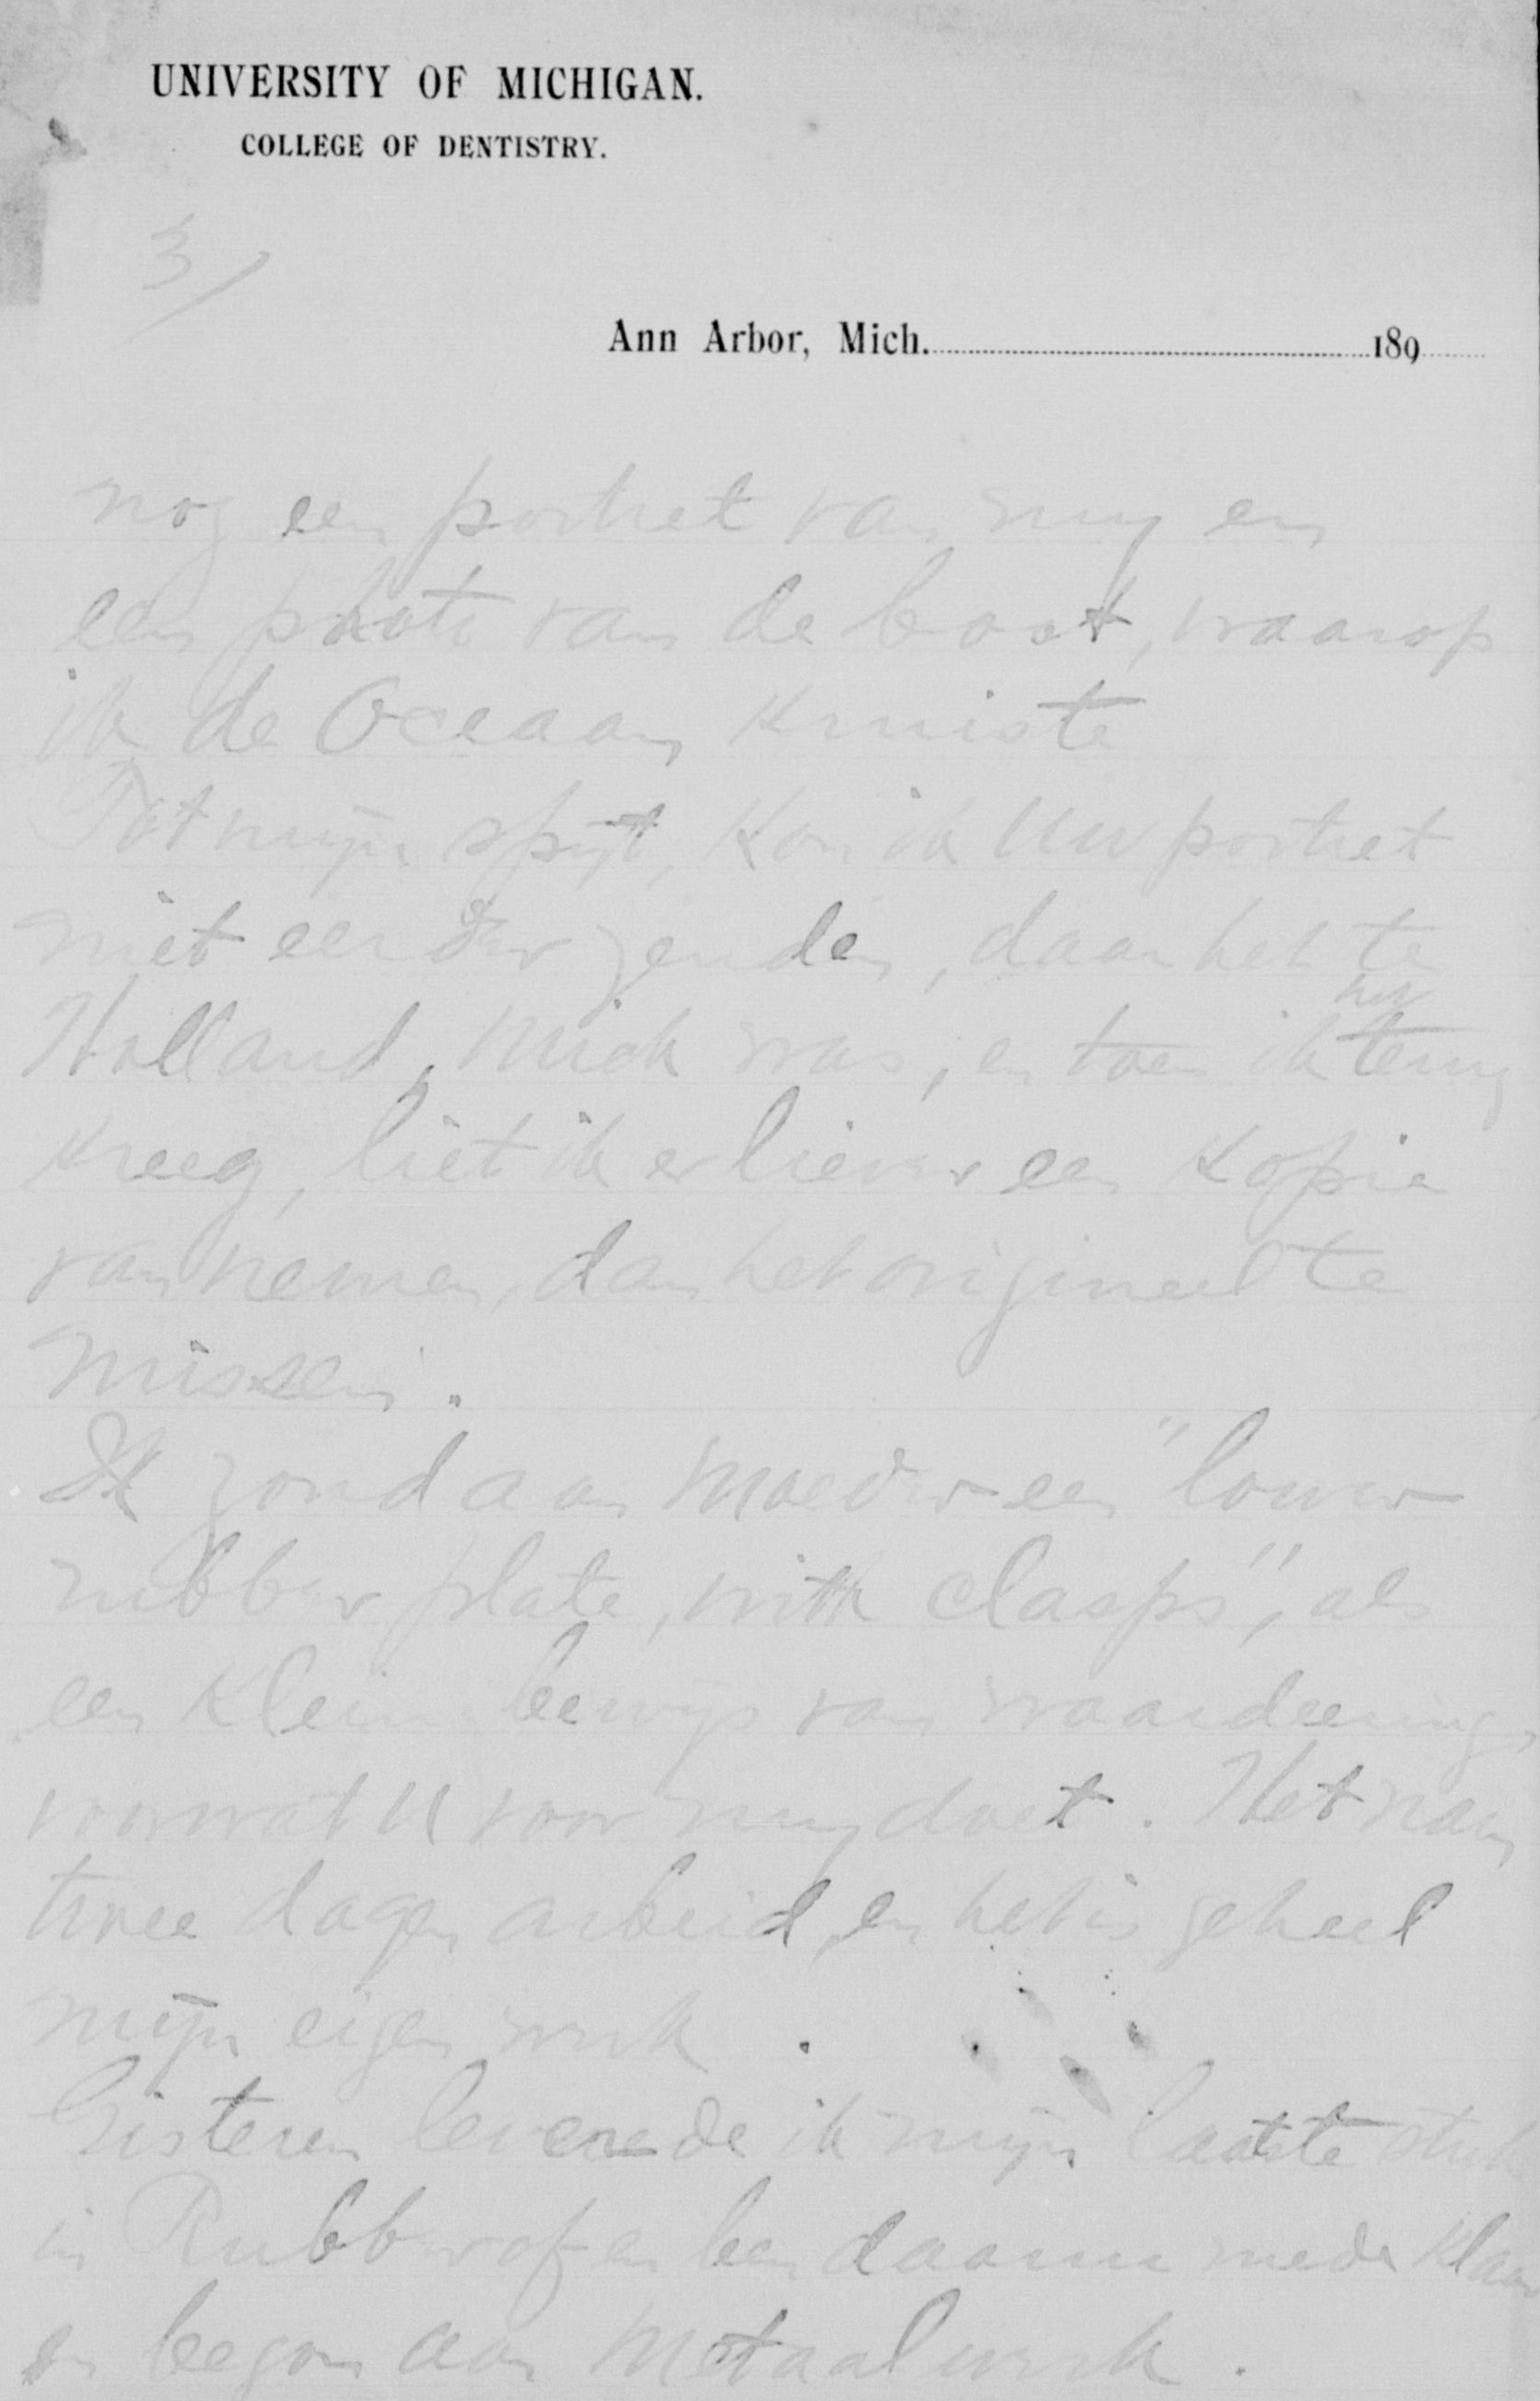 UNIVERSITY OF MICHIGAN.
COLLEGE OF DENTISTRY.
3/
Ann Arbor, Mich. 189
nog een portret van my en
een photo van de boot, waarop
ik de Oceaan kruiste
Tot mijn spijt, kon ik Uw portret
niet eerder zenden, daar het te
Holland, Mich was, en toen ik het terug
kreeg, liet ik er liever een kopie
van nemen, dan het origineel te
missen.
Ik zond aan Moeder een "lower
rubber plate, with clasps", als
een klein bewijs van waardeering,
voor wat U voor my doet. Het nam
twee dagen arbeid, en het is geheel
mijn eigen werk.
Gisteren leverde ik mijn laatste stuk
in Rubber af en ben daarmee klaar
en begon aan Metaalwerk.